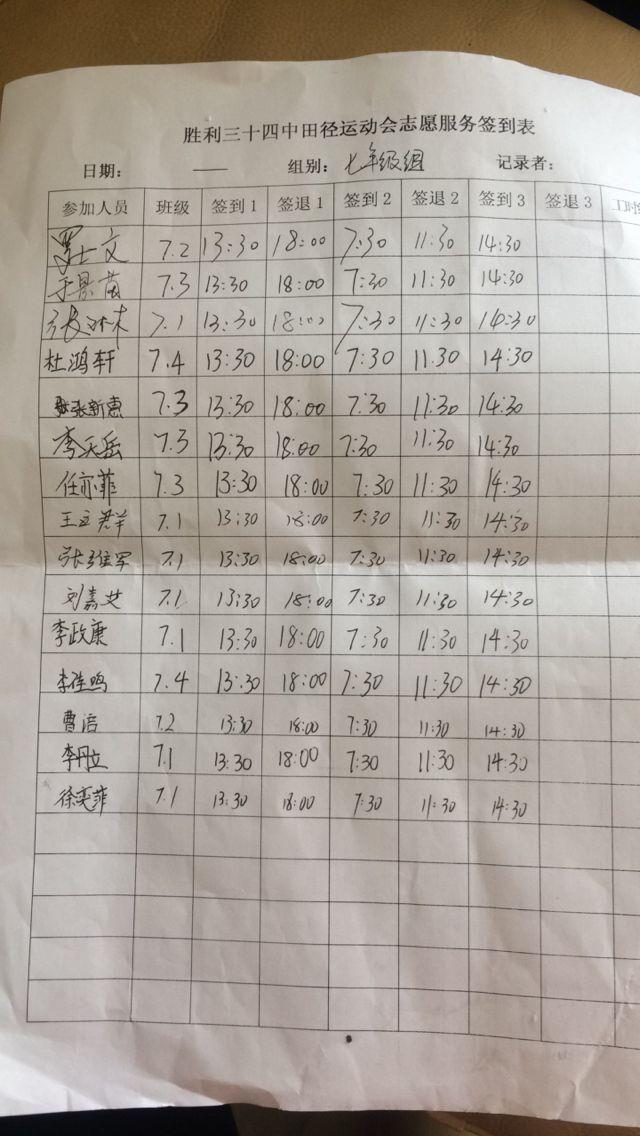 胜利三十四中田径运动会志愿服务签到表
日期： —— 组别：七年级组 记录者：
参加人员 班级 签到1 签退1 签到2 签退2 签到3 签退3 工时
文 7.2 13:30 18:00 7:30 11:30 14:30
于 7.3 13:30 18:00 7:30 11:30 14:30
张 7.1 13:30 18:00 7:30 11:30 14:30
杜鸿轩 7.4 13:30 18:00 7:30 11:30 14:30
张新惠 7.3 13:30 18:00 7:30 11:30 14:30
李天岳 7.3 13:30 18:00 7:30 11:30 14:30
任亦菲 7.3 13:30 18:00 7:30 11:30 14:30
王立群 7.1 13:30 18:00 7:30 11:30 14:30
张 军 7.1 13:30 18:00 7:30 11:30 14:30
刘嘉 7.1 13:30 18:00 7:30 11:30 14:30
李政康 7.1 13:30 18:00 7:30 11:30 14:30
李佳鸣 7.4 13:30 18:00 7:30 11:30 14:30
曹洁 7.2 13:30 18:00 7:30 11:30 14:30
李丹立 7.1 13:30 18:00 7:30 11:30 14:30
徐奕菲 7.1 13:30 18:00 7:30 11:30 14:30